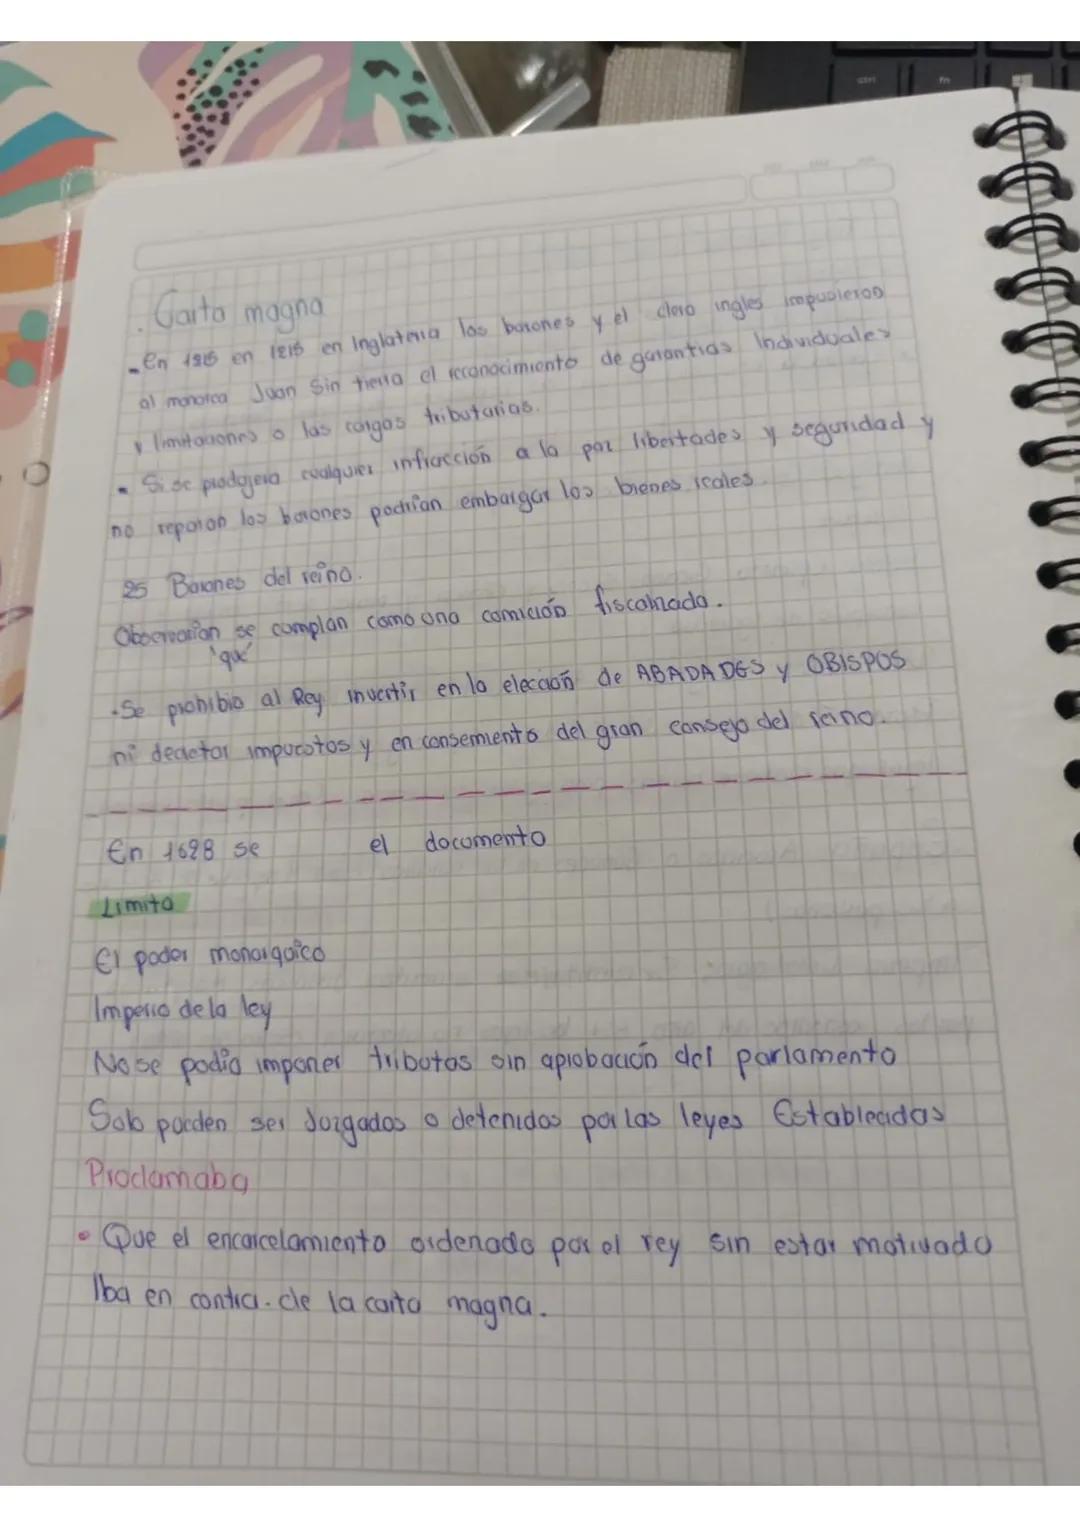 . Carta magna
- En 1215 en 1215 en Inglaterra los barones y el clero ingles impusieron
al monarca Juan Sin tierra el reconocimiento de garantias Individuales
y limitaciones a las cargas tributarias.
- Si se produjera cualquier infracción a la paz libertades y seguridad y
no reparan los barones podrían embargar los bienes reales.
25 Barones del reino.
Observarian se cumplan como una comición fiscalizada.
'que'
-Se prohibio al Rey invertir en la elección de ABADADES y OBISPOS
ni decretar impuestos y en consemiento del gran consejo del reino.
En 1628 se el documento
Limito
El poder monarquico
Imperio de la ley
No se podia imponer tributos sin aprobación del parlamento
Solo pueden ser Juzgados o detenidos por las leyes Establecidas
Proclamaba
• Que el encarcelamiento ordenado por el rey sin estar motivado
Iba en contra. de la carta magna.
ctrl
fn